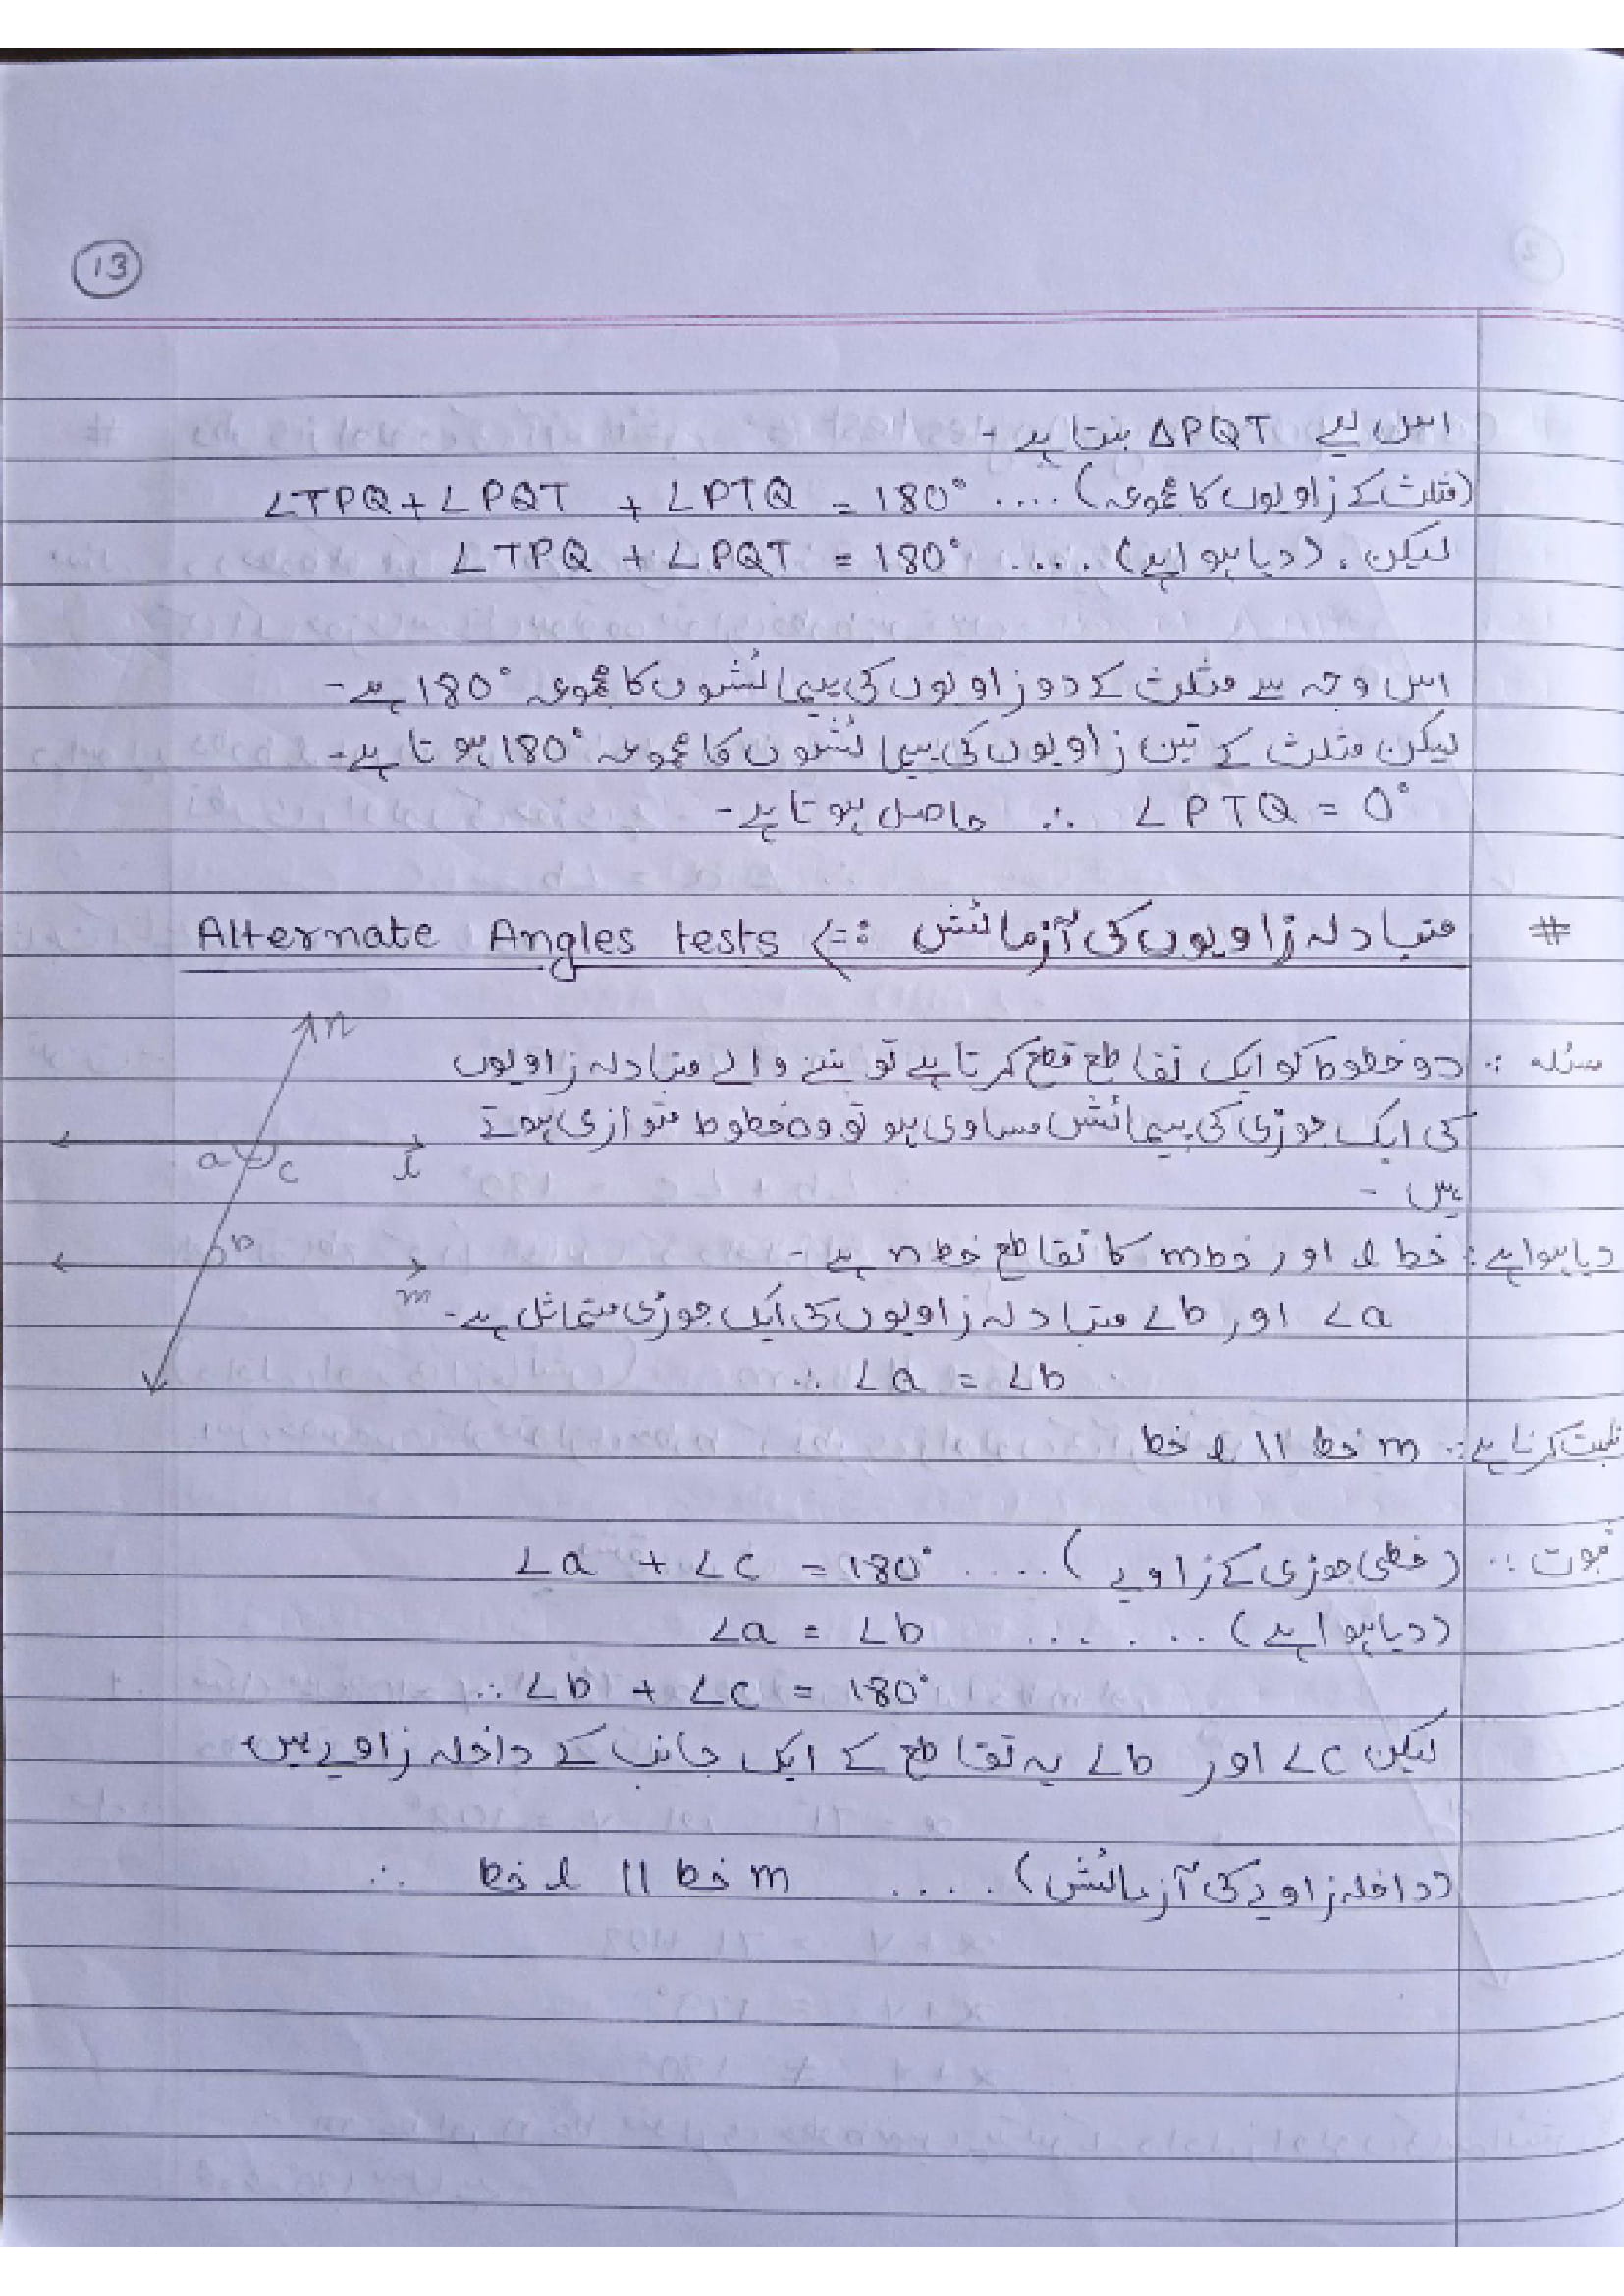 13
اس لیے ΔPQT بنتا ہے -
∠TPQ + ∠PQT + ∠PTQ = 180° .... (مثلث کے زاویوں کا مجموعہ)
لیکن، ∠TPQ + ∠PQT = 180° .... (دیا ہوا ہے)
اس وجہ سے مثلث کے دو زاویوں کی پیمائشوں کا مجموعہ 180° ہے -
لیکن مثلث کے تین زاویوں کی پیمائشوں کا مجموعہ 180° ہوتا ہے -
∠PTQ = 0° ∴ حاصل ہوتا ہے -
# متبادلہ زاویوں کی آزمائش :=> Alternate Angles tests
n
مسئلہ :. دو خطوط کو ایک تقاطع قطع کرتا ہے تو بننے والے متبادلہ زاویوں
کی ایک جوڑی کی پیمائش مساوی ہو تو وہ خطوط متوازی ہوتے
a c l
ہیں -
دیا ہوا ہے : خط l اور خط m کا تقاطع خط n ہے -
b
m
∠a اور ∠b متبادلہ زاویوں کی ایک جوڑی متماثل ہے -
∴ ∠a = ∠b
ثابت کرنا ہے :. خط l || خط m
ثبوت :. ∠a + ∠c = 180° .... (خطی جوڑی کے زاویے)
∠a = ∠b ...... (دیا ہوا ہے)
∴ ∠b + ∠c = 180°
لیکن ∠c اور ∠b یہ تقاطع کے ایک جانب کے داخلہ زاویے ہیں
∴ خط l || خط m .... (داخلہ زاویے کی آزمائش)